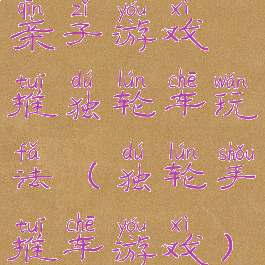 qīn zǐ yóu xì
亲子游戏
tuī dú lún chē wán
推独轮车玩
fǎ dú lún shǒu
法(独轮手
tuī chē yóu xì
推车游戏)